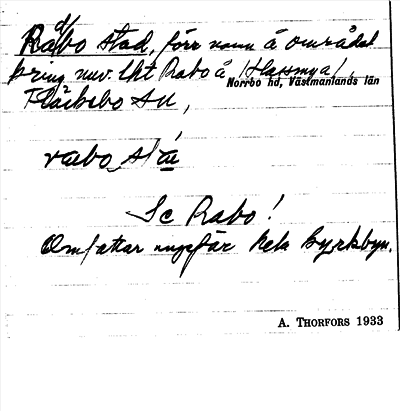 Råbo stad, förr namn å området
kring nuv. lht Rabo å (Hassmya),
Norrbo hd, Västmanlands län
su,
rabo sta
Se Rabo!
Omfattar ungefär hela byrkbyn.
A. THORFORS 1933